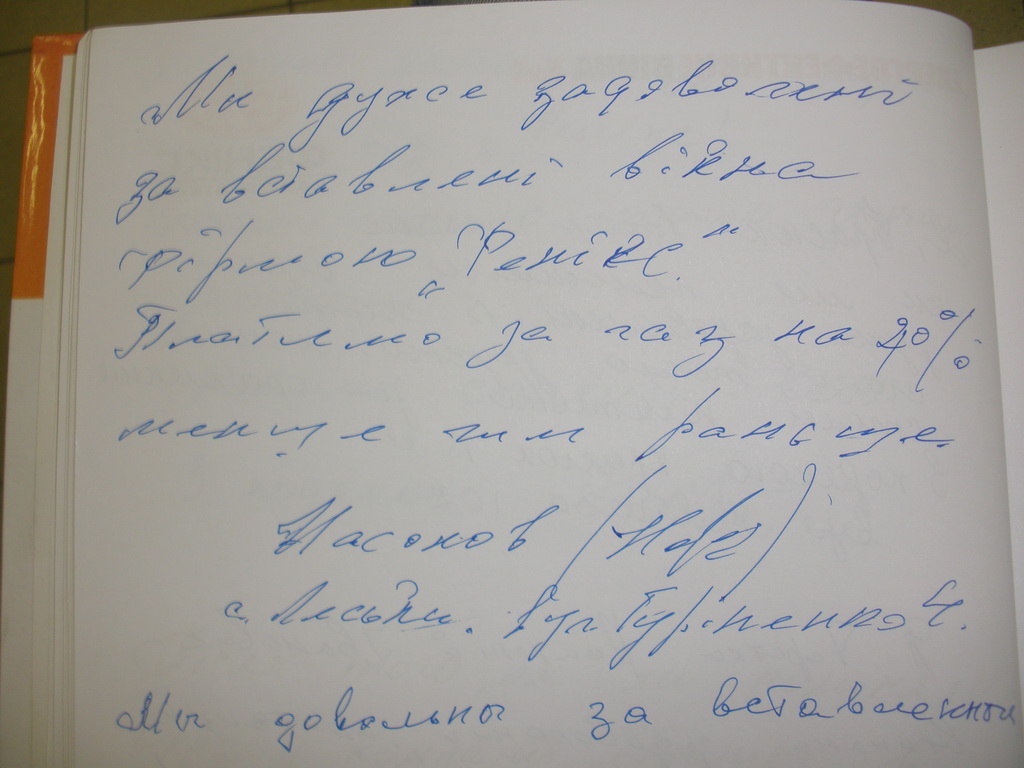 Ми дуже задоволені
за вставлені вікна
фірмою „Фенікс“.
Платимо за газ на 20%
менще чим раньше.
Насонов
с. Леськи. вул Гуріненко 4.
Мы довольны за вставленные